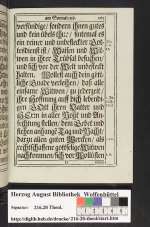 am Sonnabend.
verkündige/ sondern ihnen gutes
und kein übels thue/ sintemal es
ein reiner und unbefleckter Got-
tesdienst ist/ Waisen und Wit-
wen in ihrer Trübsal besuchen/
und sich vor der Welt unbefleckt
halten. Wollest auch dein gött-
liche Gnade verleihen/ daß alle
einsame Witwen/ zu jederzeit
ihre Hoffnung auff dich lebendi-
gen GOtt ihren Vatter und
HErrn in aller Noht und An-
fechtung stellen/ dem Gebet und
flehen anhangē Tag und Nacht/
darzu allen guten Wercken/ als
rechtschaffene gottselige Witwen
nachkommen/ sich vor Wollüsten
Herzog August Bibliothek Wolfenbüttel
Signatur: 216.28 Theol.
http://diglib.hab.de/drucke/216-28-theol/start.htm